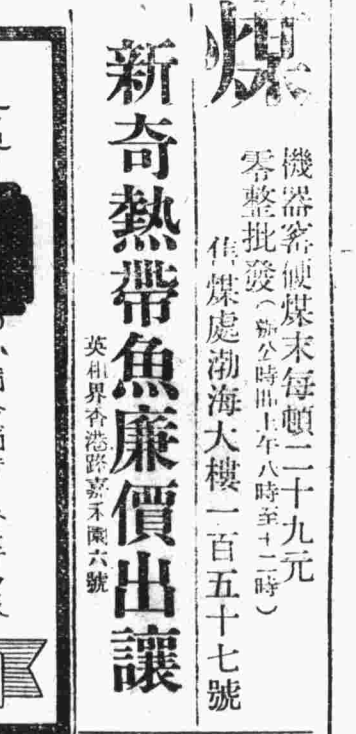 煤
機器窰便煤末每頓二十九元
零整批發（辦公時間上午八時至十二時）
售煤處渤海大樓一百五十七號
新奇熱帶魚廉價出讓
英租界香港路嘉禾園六號